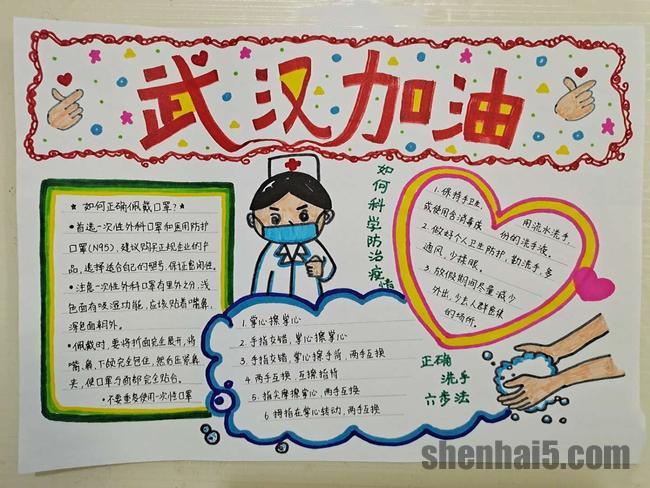 武汉加油
★如何正确佩戴口罩?★
•首选一次性外科口罩和医用防护
口罩(N95),建议购买正规企业的产
品,选择适合自己的型号,保证密闭性。
•注意一次性外科口罩有里外之分,浅
色面有吸湿功能,应该贴着嘴鼻,
深色面朝外。
•佩戴时,要将折面完全展开,将
嘴、鼻、下颌完全包住,然后压紧鼻
夹,使口罩与面部完全贴合。
•不要重复使用一次性口罩
如何科学防治疫情
1.保持手卫生, 用流水洗手,
或使用含消毒成 份的洗手液。
2.做好个人卫生防护,勤洗手,多
通风,少揉眼。
3.放假期间尽量减少
外出,少去人群密集
的场所。
1.掌心擦掌心
2.手指交错,掌心擦掌心
3.手指交错,掌心擦手背,两手互换
4.两手互握,互擦指背
5.指尖摩擦掌心,两手互换
6.拇指在掌心转动,两手互换
正确
洗手
六步法
shenhai5.com